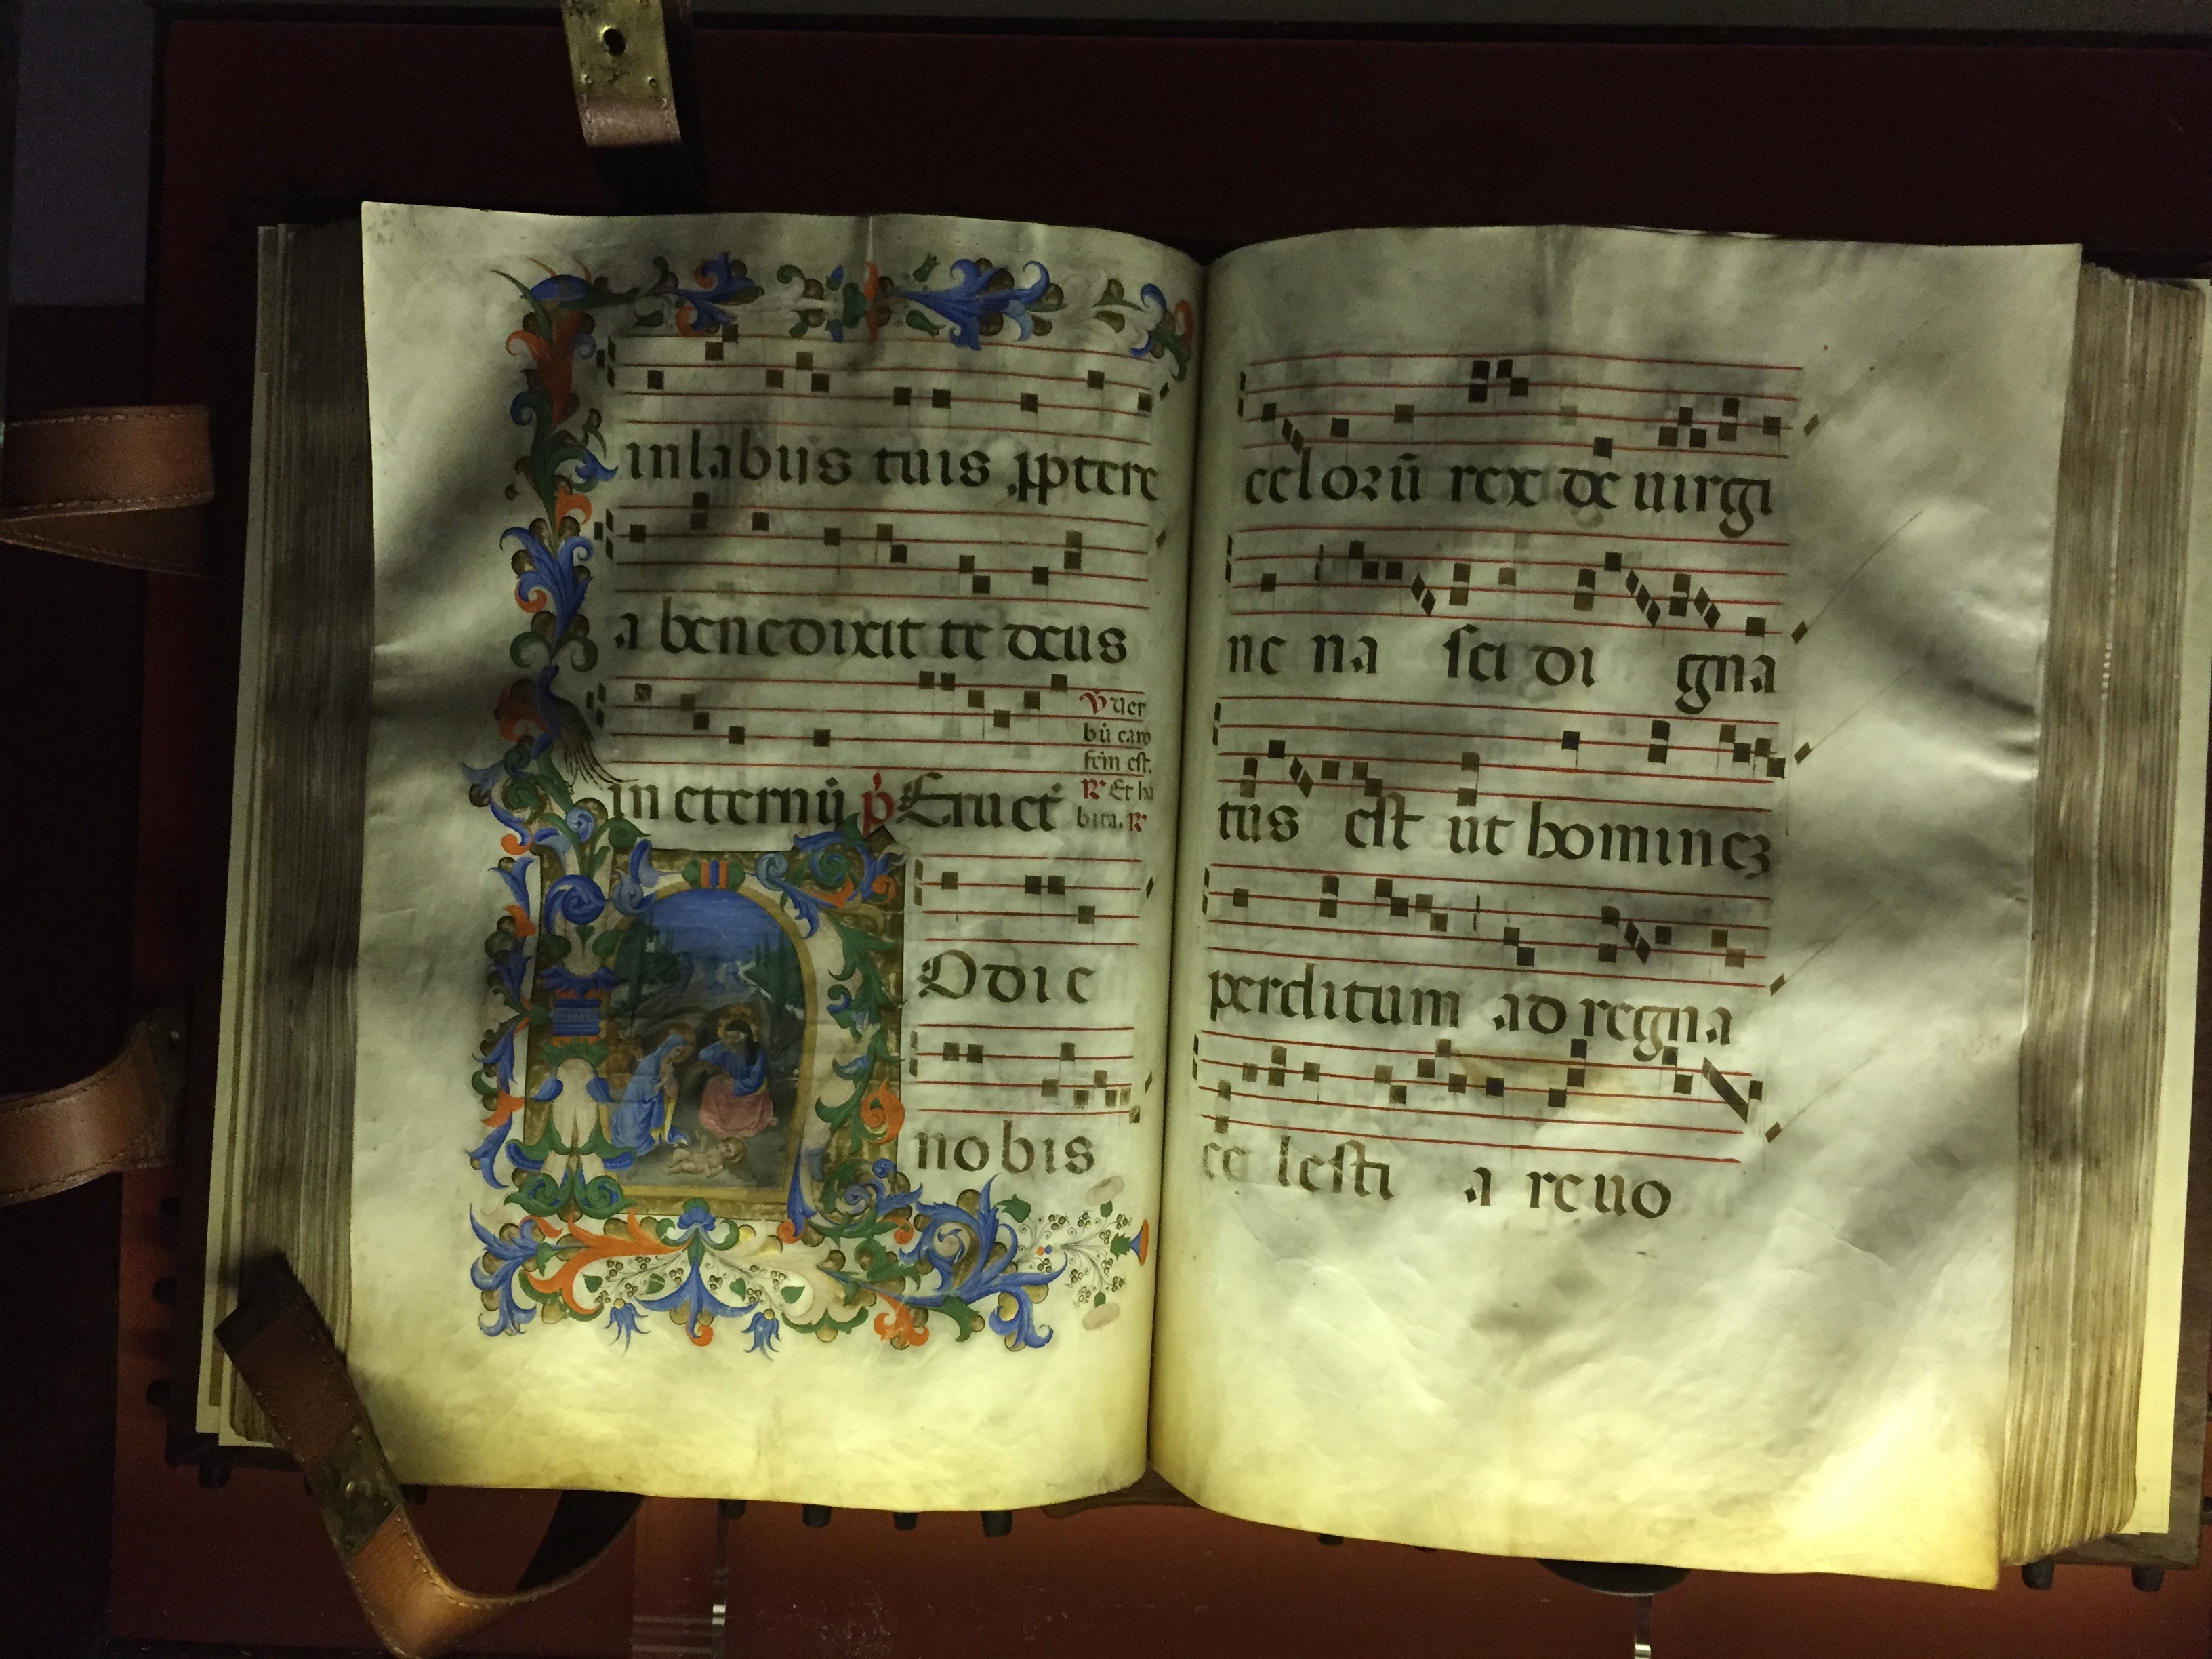 in labiis tuis ꝓptere
a benedixit te deus
in eternū p̄s Eruct
℣ uer
bū caro
fcm̄ est.
℟ Et ha
bita. ℟
Odi e
nobis
celorū rex de uirgi
ne na sci di gna
tus est ut hominez
perditum ad regna
ce lesti a reuo